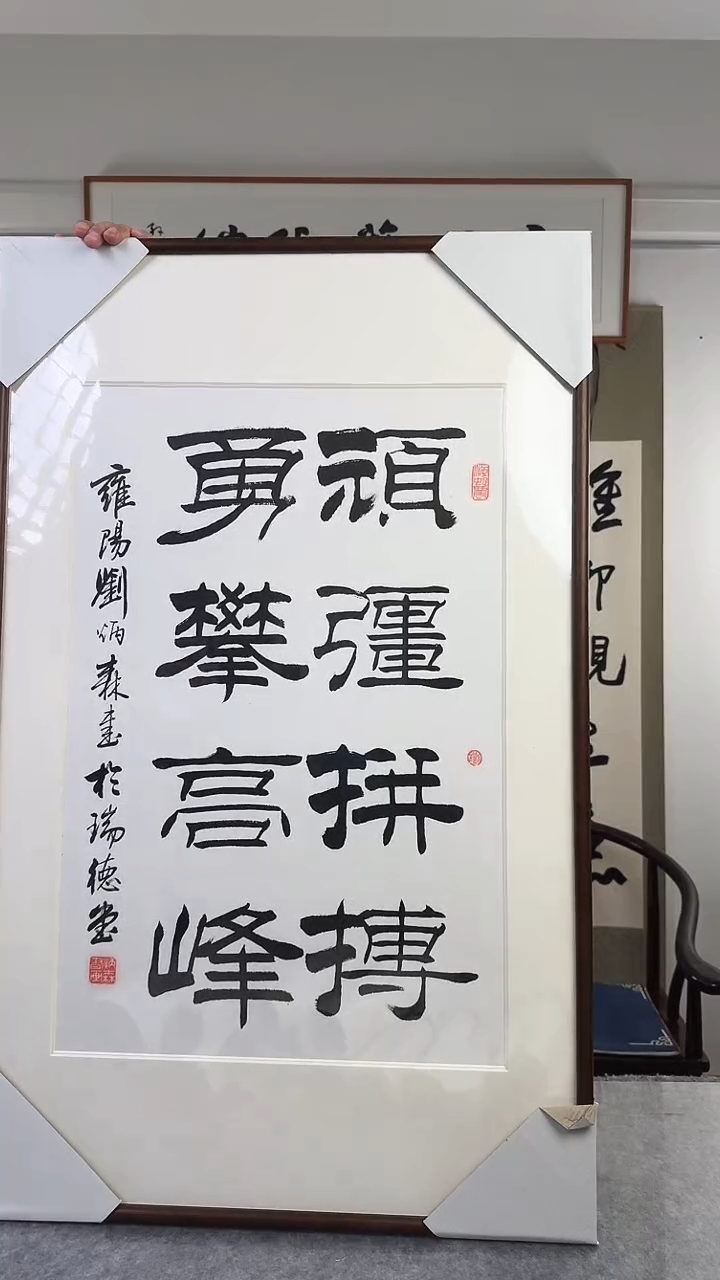 頑彊拼搏
勇攀高峰
雍陽劉炳森書於瑞德堂